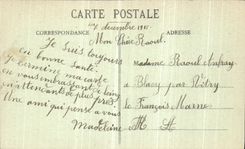 CARTE POSTALE
CORRESPONDANCE
ADRESSE
decembre
Mon cher Raoul.
Je suis toujours
en bonne Santé.
Je termine ma carte
en vous embrassant
en attendant de plus près
Une ami qui pense a vous
Madeleine
Madame Raoul
Blacy par Vitry
le François Marne